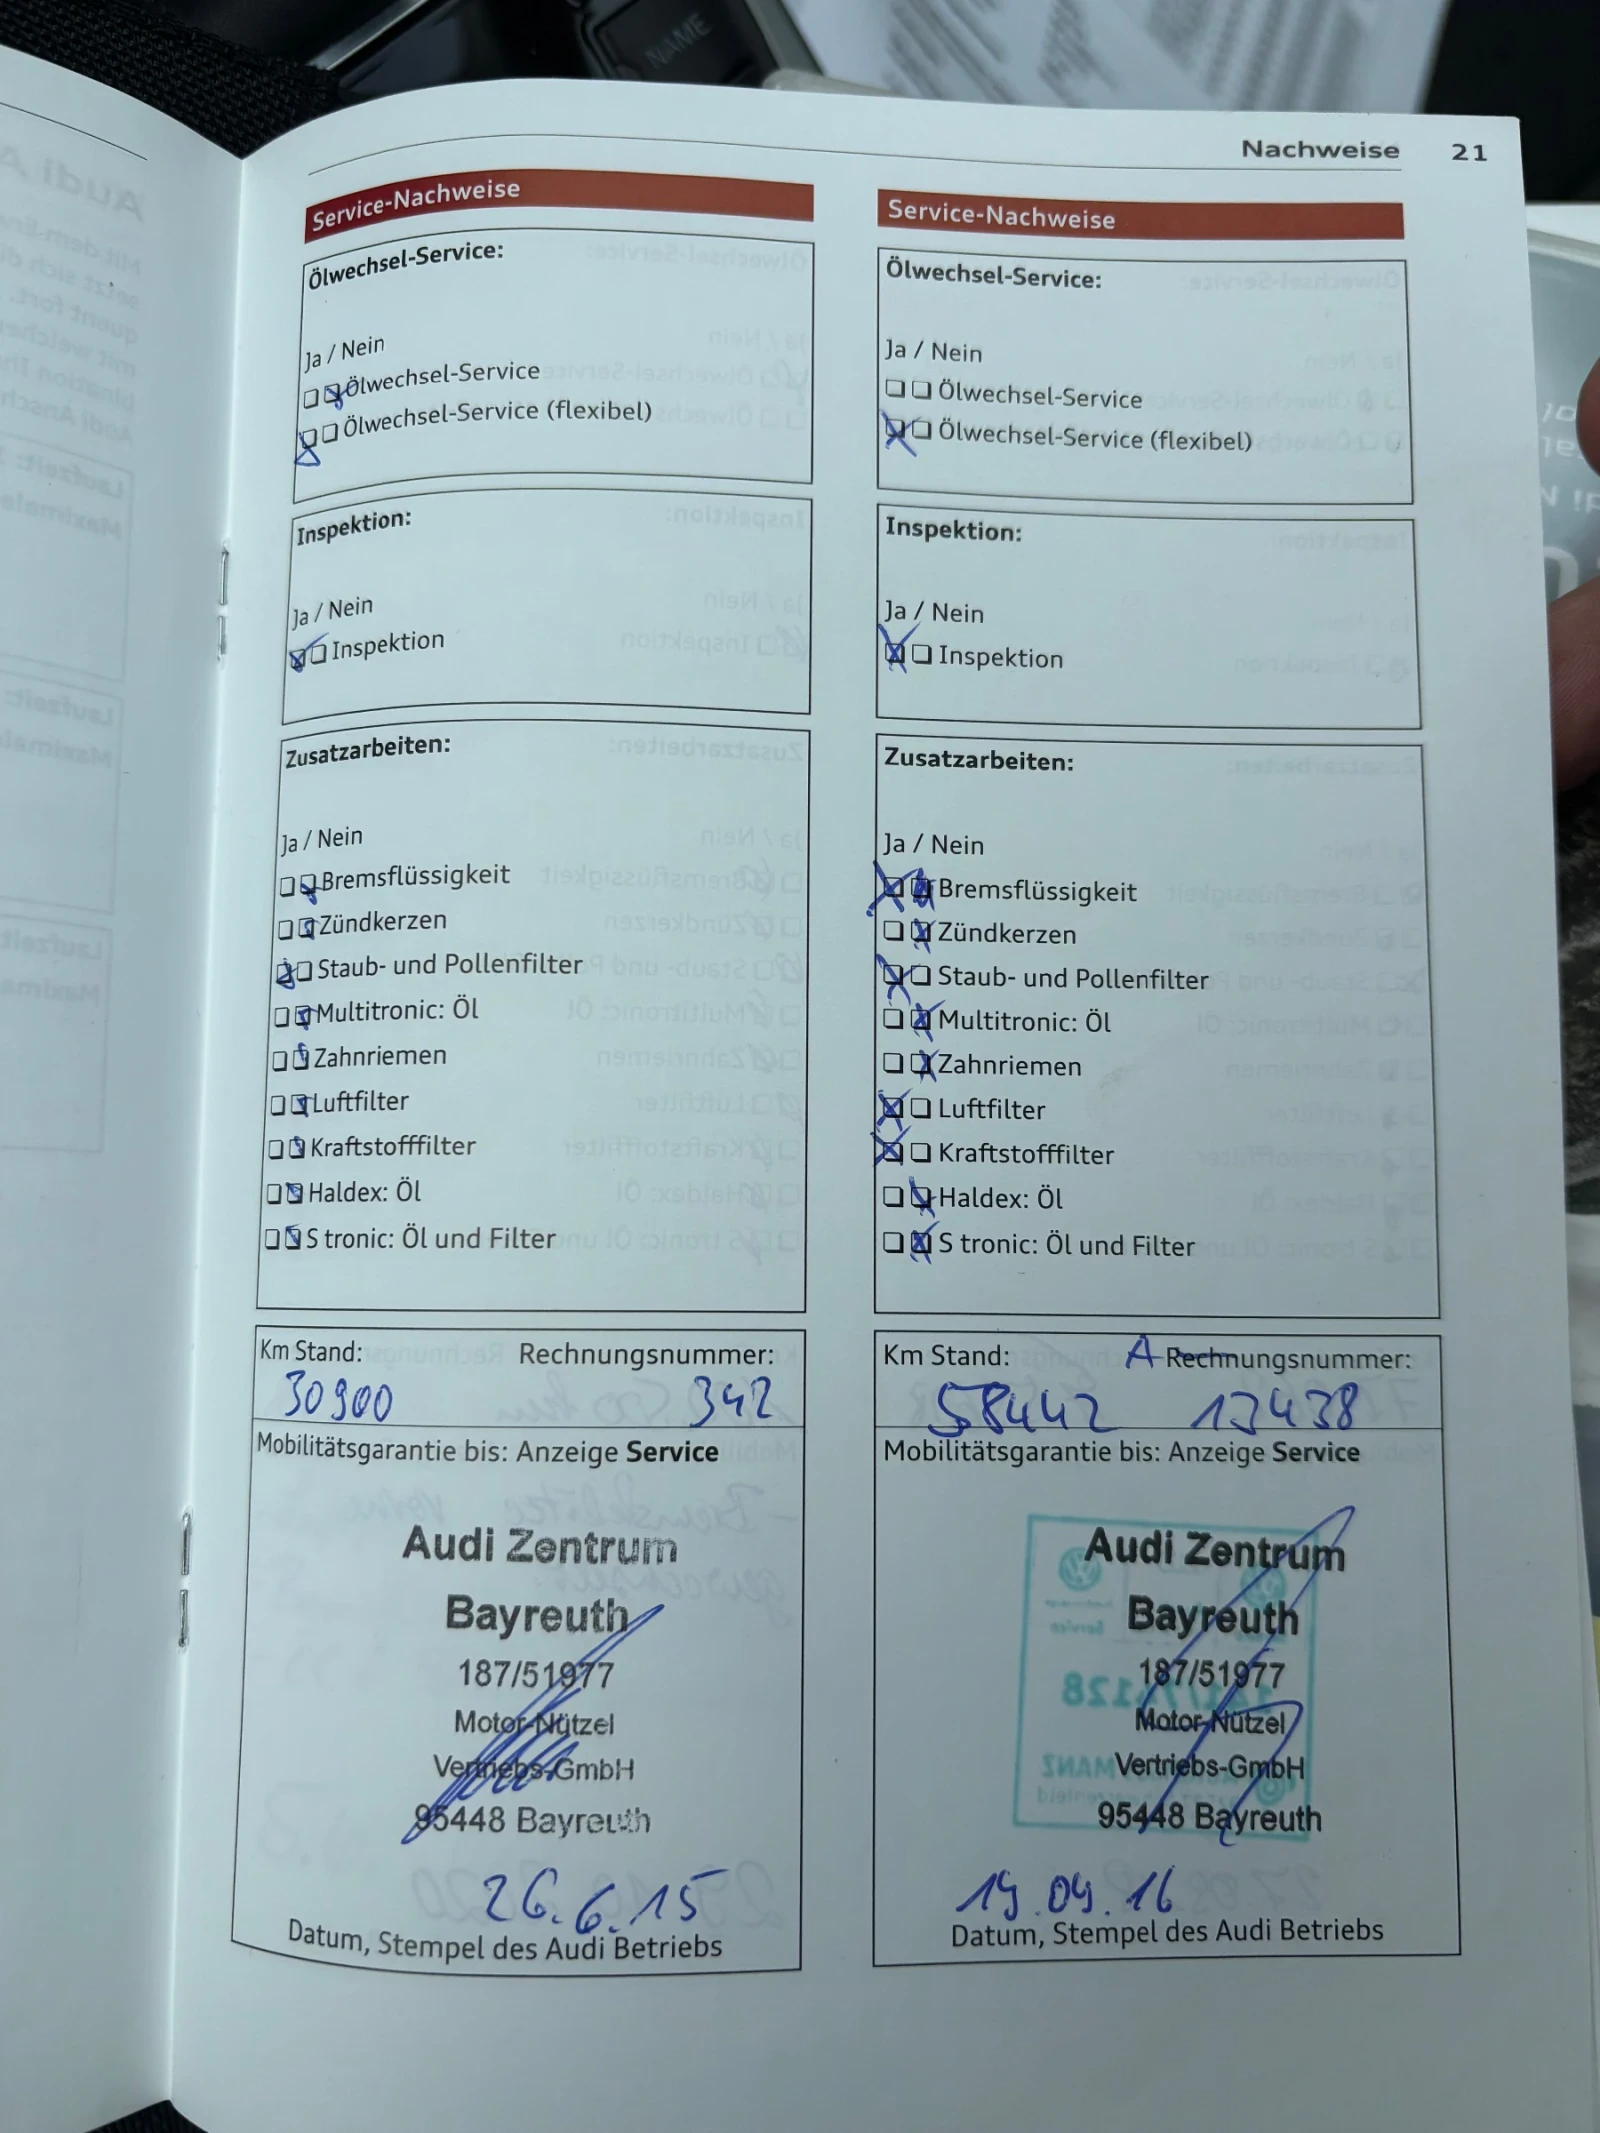 NAME
Nachweise 21
Service-Nachweise
Ölwechsel-Service:
Ja / Nein
Ölwechsel-Service
Ölwechsel-Service (flexibel)
Inspektion:
Ja / Nein
Inspektion
Zusatzarbeiten:
Ja / Nein
Bremsflüssigkeit
Zündkerzen
Staub- und Pollenfilter
Multitronic: Öl
Zahnriemen
Luftfilter
Kraftstofffilter
Haldex: Öl
S tronic: Öl und Filter
Km Stand: Rechnungsnummer:
30900 342
Mobilitätsgarantie bis: Anzeige Service
Audi Zentrum
Bayreuth
187/51977
Motor-Nützel
Vertriebs-GmbH
95448 Bayreuth
26.6.15
Datum, Stempel des Audi Betriebs
Service-Nachweise
Ölwechsel-Service:
Ja / Nein
Ölwechsel-Service
Ölwechsel-Service (flexibel)
Inspektion:
Ja / Nein
Inspektion
Zusatzarbeiten:
Ja / Nein
Bremsflüssigkeit
Zündkerzen
Staub- und Pollenfilter
Multitronic: Öl
Zahnriemen
Luftfilter
Kraftstofffilter
Haldex: Öl
S tronic: Öl und Filter
Km Stand: A Rechnungsnummer:
58442 13438
Mobilitätsgarantie bis: Anzeige Service
Audi Zentrum
Bayreuth
187/51977
Motor-Nützel
Vertriebs-GmbH
95448 Bayreuth
19.09.16
Datum, Stempel des Audi Betriebs